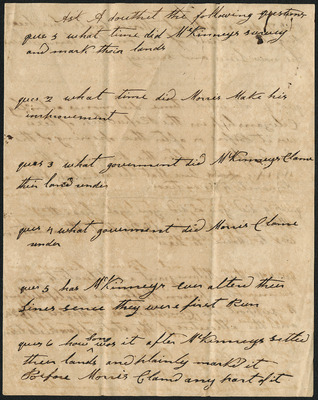 Ask A Southet the following questions
ques 3 what time did McKinneys survey
and mark their lands
ques 2 what time did Morris Make his
improvement
ques 3 what goverment did McKinneys Claim
their land under
ques 4 what goverment did Morris Claim
under
ques 5 has McKinneys ever altend their
Lines sence they were first Run
ques 6 how long was it after McKinneys settled
their lands and plainly marked it
Before Morris Claimd any part of it